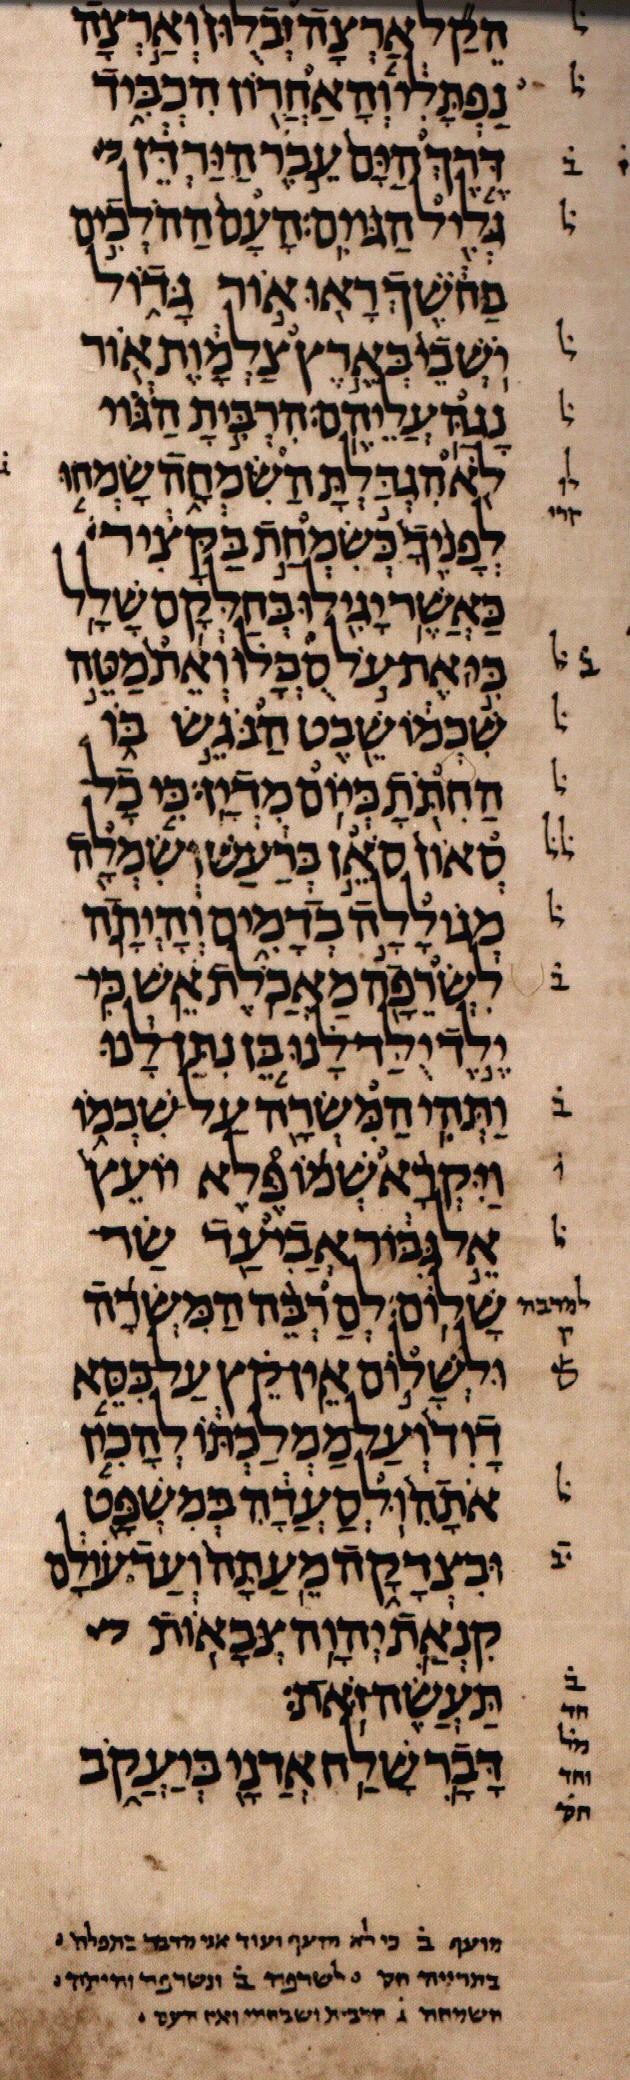 הֵקַל אַרְצָה זְבֻלוּן וְאַרְצָה
נַפְתָּלִי וְהָאַחֲרוֹן הִכְבִּיד
דֶּרֶךְ הַיָּם עֵבֶר הַיַּרְדֵּן
גְּלִיל הַגּוֹיִם׃ הָעָם הַהֹלְכִים
בַּחֹשֶׁךְ רָאוּ אוֹר גָּדוֹל
יֹשְׁבֵי בְּאֶרֶץ צַלְמָוֶת אוֹר
נָגַהּ עֲלֵיהֶם׃ הִרְבִּיתָ הַגּוֹי
לֹא הִגְדַּלְתָּ הַשִּׂמְחָה שָׂמְחוּ
לְפָנֶיךָ כְּשִׂמְחַת בַּקָּצִיר
כַּאֲשֶׁר יָגִילוּ בְּחַלְּקָם שָׁלָל
כִּי אֶת עֹל סֻבֳּלוֹ וְאֵת מַטֵּה
שִׁכְמוֹ שֵׁבֶט הַנֹּגֵשׂ בּוֹ
הַחִתֹּתָ כְּיוֹם מִדְיָן׃ כִּי כָל
סְאוֹן סֹאֵן בְּרַעַשׁ וְשִׂמְלָה
מְגוֹלָלָה בְדָמִים וְהָיְתָה
לִשְׂרֵפָה מַאֲכֹלֶת אֵשׁ׃ כִּי
יֶלֶד יֻלַּד לָנוּ בֵּן נִתַּן לָנוּ
וַתְּהִי הַמִּשְׂרָה עַל שִׁכְמוֹ
וַיִּקְרָא שְׁמוֹ פֶּלֶא יוֹעֵץ
אֵל גִּבּוֹר אֲבִיעַד שַׂר
שָׁלוֹם׃ לְםַרְבֵּה הַמִּשְׂרָה
וּלְשָׁלוֹם אֵין קֵץ עַל כִּסֵּא
דָוִד וְעַל מַמְלַכְתּוֹ לְהָכִין
אֹתָהּ וּלְסַעֲדָהּ בְּמִשְׁפָּט
וּבִצְדָקָה מֵעַתָּה וְעַד עוֹלָם
קִנְאַת יְהוָה צְבָאוֹת
תַּעֲשֶׂה זֹּאת׃
דָּבָר שָׁלַח אֲדֹנָי בְּיַעֲקֹב
מועף ב̇ כי לא מועף ועוד אני מדבר בתפלה
לשרפה ב̇ ונשרפה והיתה
השמחה ג̇ הרבית ושבחתי ואין העם